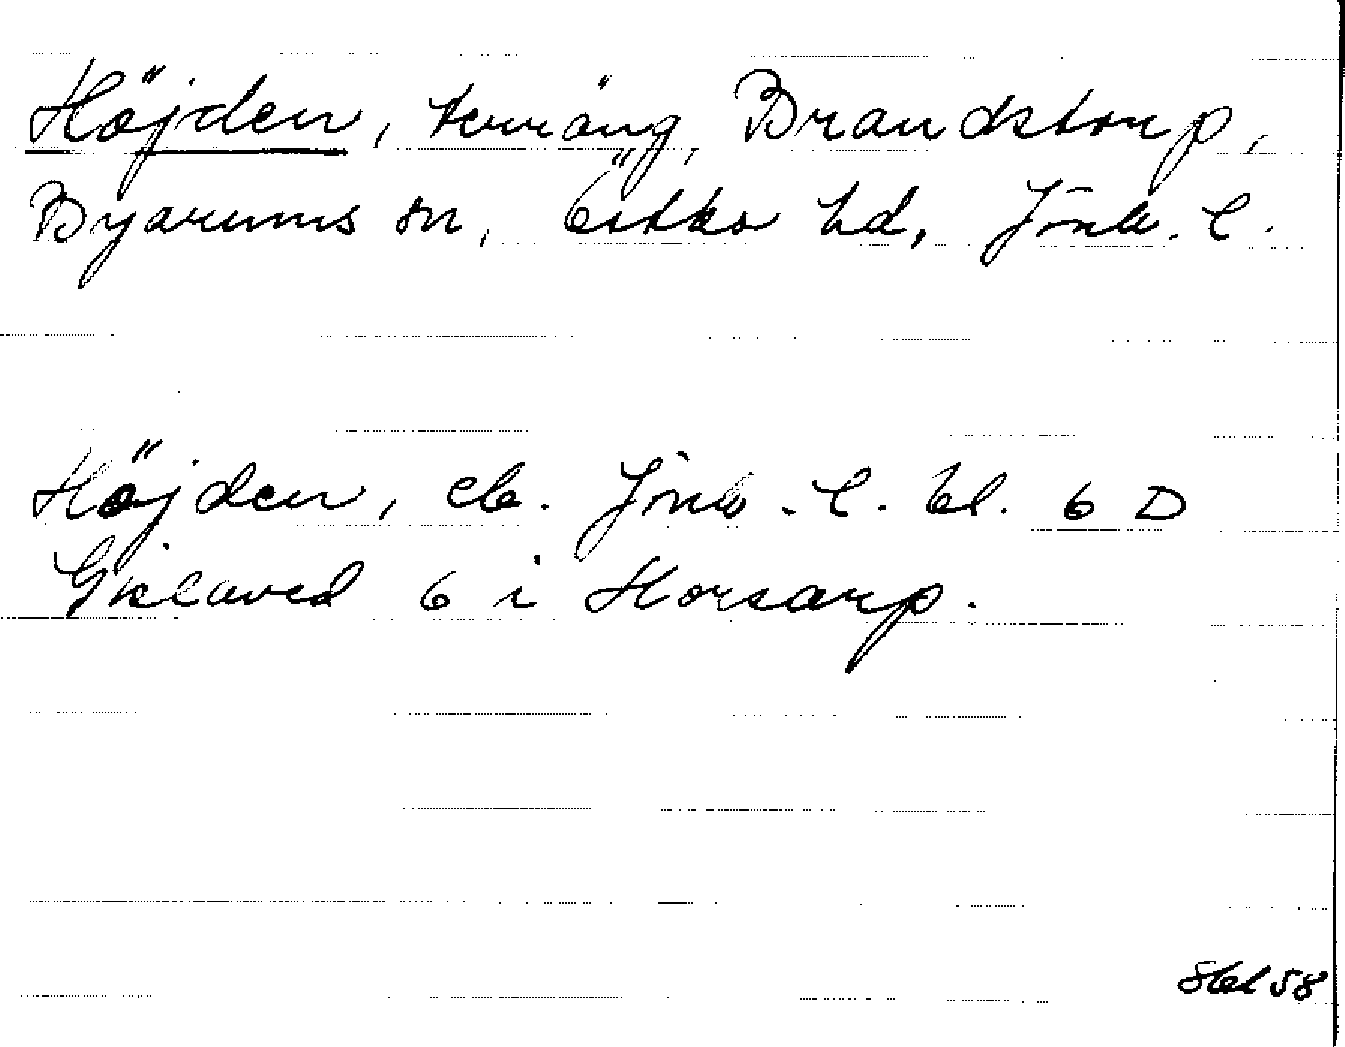 Höjden, terräng, Brandstorp,
Byarums sn, Östbo hd, Jönk. l.
Höjden, eb. Jönk. l. bl. 6 D
Gislaved 6 i Horsarp.
58